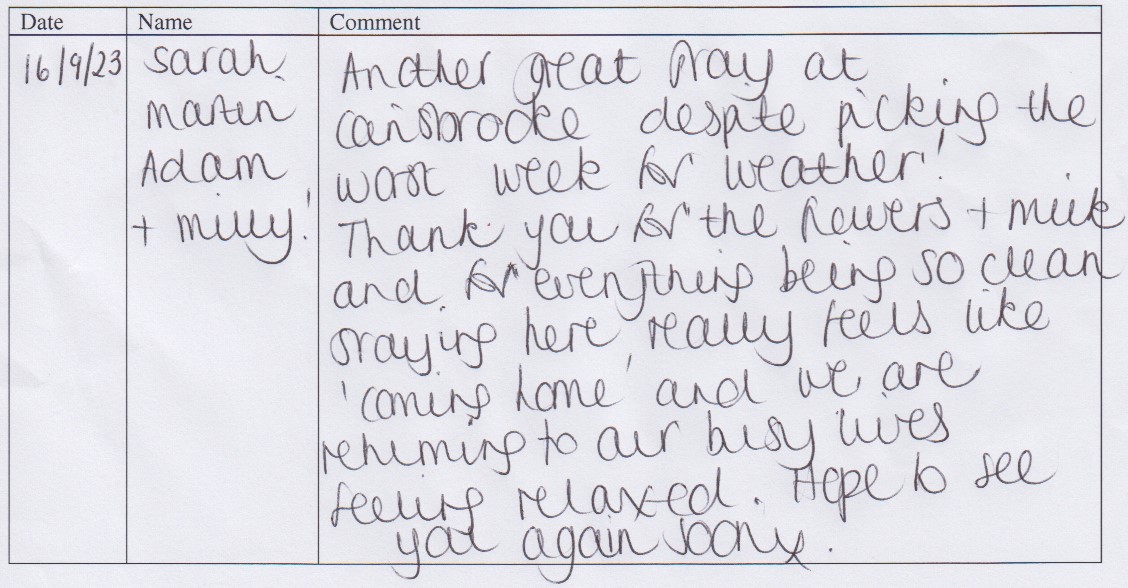 Date Name Comment
16/9/23 Sarah Another great stay at
Martin Carisbrooke despite picking the
Adam worst week for weather!
+ Milly! Thank you for the flowers + milk
and for everything being so clean
Staying here really feels like
'coming home' and we are
returning to our busy lives
feeling relaxed. Hope to see
you again soon x.